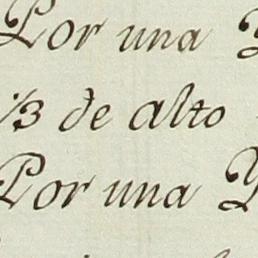 Por una
⅓ de alto
Por una Y